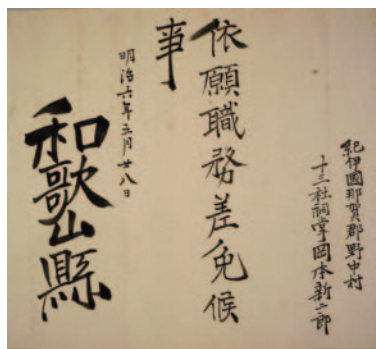 紀伊國那賀郡野中村
十三社祠掌岡本新二郎
依願職務差免候
事
明治六年三月廿八日
和歌山縣